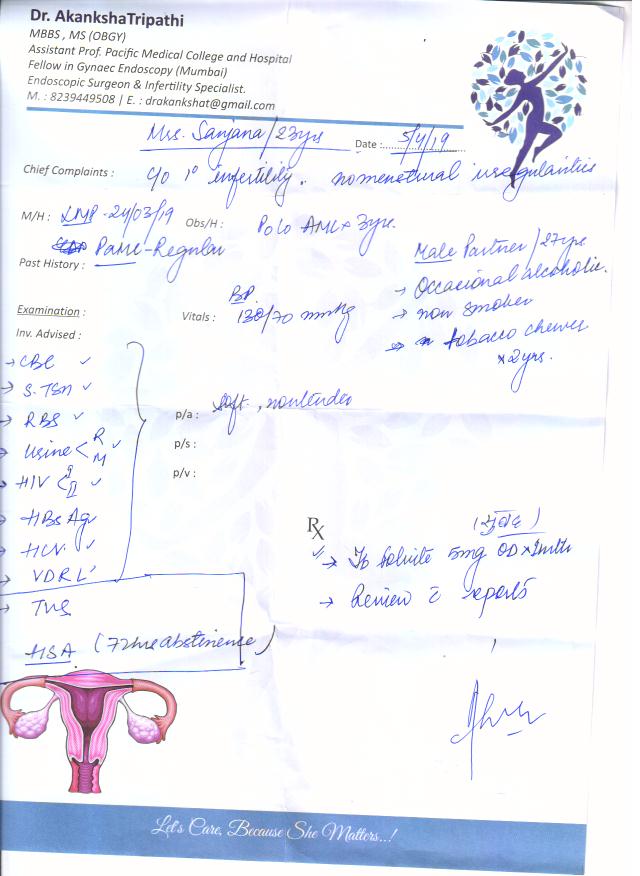 Dr. AkankshaTripathi
MBBS , MS (OBGY)
Assistant Prof. Pacific Medical College and Hospital
Fellow in Gynaec Endoscopy (Mumbai)
Endoscopic Surgeon & Infertility Specialist.
M. : 8239449508 | E. : drakankshat@gmail.com
Mrs. Sanjana / 23yrs
Date : 5/4/19
Chief Complaints : c/o 1° infertility. no menstrual irregularities
M/H : LMP - 24/03/19 Obs/H : P0L0 AML × 3yrs.
PAML - Regular
Past History :
Male Partner / 27yrs
→ Occasional alcoholic.
→ non smoker
→ tobacco chewer
× 2yrs.
Examination :
Vitals : BP. 130/70 mmHg
Inv. Advised :
→ CBC ✓
→ S. TSH ✓
→ RBS ✓
Urine < R M ✓
→ HIV < I II ✓
→ HBsAg
→ HCV ✓
→ VDRL ✓
→ TVS
HSA (72hrs abstinence)
p/a : soft, nontender
p/s :
p/v :
Rx
✓ → Tb folvite 5mg OD × 1mth
→ Review c̄ reports
Let's Care, Because She Matters..!